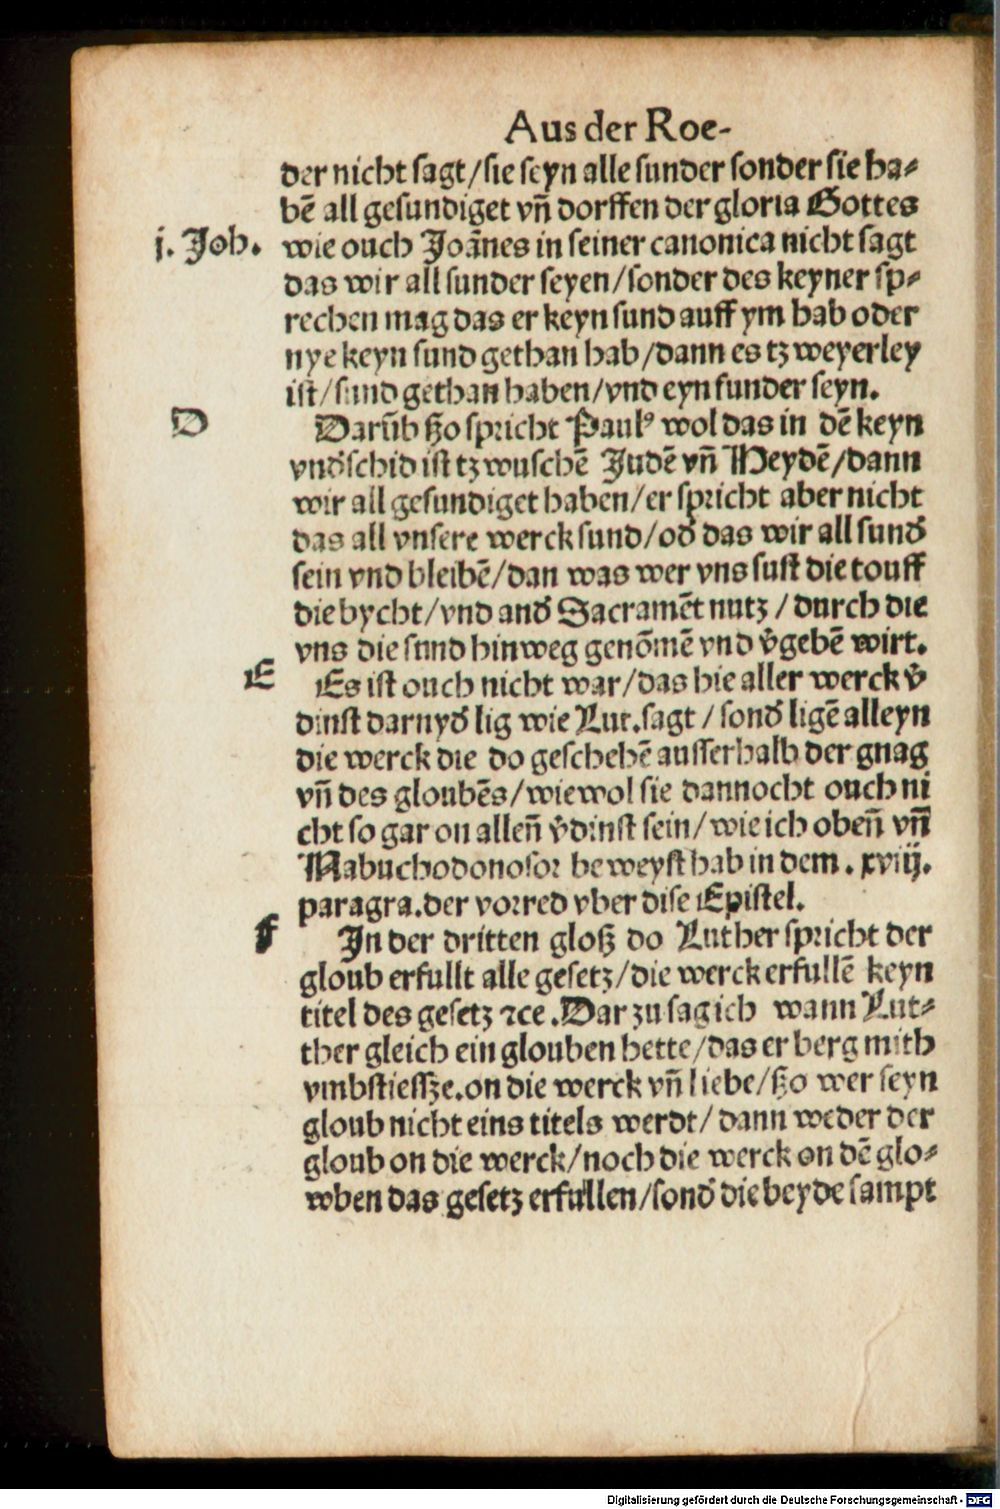 Aus der Roe-
der nicht sagt/sie seyn alle sunder sonder sie ha-
bē all gesundiget vn̄ dorffen der gloria Gottes
j. Joh. wie ouch Joānes in seiner canonica nicht sagt
das wir all sunder seyen/sonder des keyner sp-
rechen mag das er keyn sund auff ym hab oder
nye keyn sund gethan hab/dann es tzweyerley
ist/sund gethan haben/vnd eyn sunder seyn.
D Darūb ßo spricht Paulꝰ wol das in dē keyn
vndschid ist tzwuschē Judē vn̄ Heydē/dann
wir all gesundiget haben/er spricht aber nicht
das all vnsere werck sund/od das wir all sund
sein vnd bleibē/dan was wer vns sust die touff
die bycht/vnd and Sacramēt nutz/durch die
vns die sund hinweg genōmē vnd v̄gebē wirt.
E Es ist ouch nicht war/das hie aller werck v̄
dinst darnyd lig wie Lut.sagt/sond ligē alleyn
die werck die do geschehē ausserhalb der gnag
vn̄ des gloubēs/wiewol sie dannocht ouch ni
cht so gar on allen̄ v̄dinst sein/wie ich oben̄ vn̄
Nabuchodonosor beweyst hab in dem. xviij.
paragra.der vorred vber dise Epistel.
F In der dritten gloß do Luther spricht der
gloub erfullt alle gesetz/die werck erfullē keyn
titel des gesetz ⁊ce.Dar zu sag ich wann Lut-
ther gleich ein glouben hette/das er berg mith
vmbstiessze.on die werck vn̄ liebe/ßo wer seyn
gloub nicht eins titels werdt/dann weder der
gloub on die werck/noch die werck on dē glo-
wben das gesetz erfullen/sond die beyde sampt
Digitalisierung gefördert durch die Deutsche Forschungsgemeinschaft - DFG